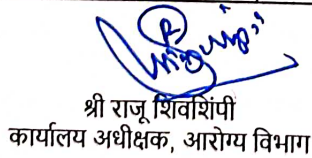 श्री राजू शिवशिंपी
कार्यालय अधीक्षक, आरोग्य विभाग